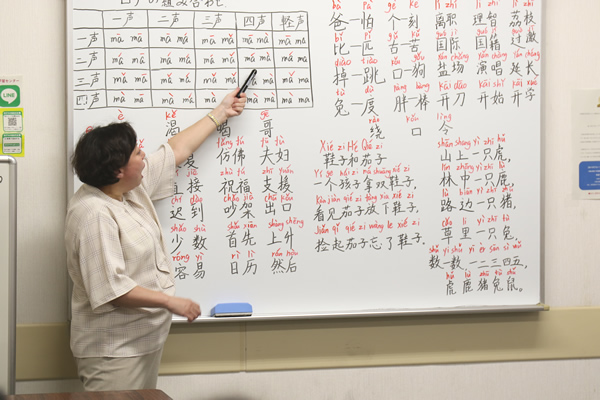 一声 二声 三声 四声 轻声
一声 mā mā mā má mā mǎ mā mà mā ma
二声 má mā má má má mǎ má mà má ma
三声 mǎ mā mǎ má mǎ mǎ mà mǎ ma
四声 mà mā mà má mà mǎ mà mà mà ma
kě
渴 喝 哥
fǎng fú fū fù
仿佛 夫妇
直接 祝福 支援
迟到 吵架 出口
shǎo shù shǒu xiān shàng shēng
少数 首先 上升
róng yì rì lì rán hòu
容易 日历 然后
爸一怕 个一刻 离职 理智 荔枝
比一匹 古一苦 国际 国籍 过激
diào tiào
掉一跳 口一狗 盐场 演唱 延长
兔一度 胖一棒 开刀 开始 开学
rào kǒu lìng
绕 口 令
Xié zi Hé Qié zi
鞋子和茄子
Yí gè hái zi ná shuāng xié zi
一个孩子拿双鞋子,
kàn jiàn qié zi fàng xià xié zi
看见茄子放下鞋子,
jiǎn qǐ qié zi wàng le xié zi
捡起茄子忘了鞋子。
shān shàng yì zhī hǔ
山上一只虎,
lín zhōng yì zhī lù
林中一只鹿,
lù biān yì zhī zhū
路边一只猪,
cǎo lǐ yì zhī tù
草里一只兔,
shǔ yi shǔ yī èr sān sì wǔ
数一数一二三四五,
hǔ lù zhū tù shǔ
虎鹿猪兔鼠。
LINE